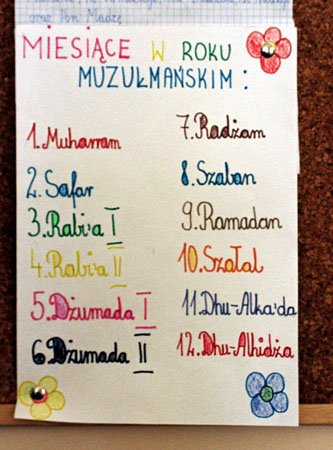 oraz Pon. Mładzę
MIESIĄCE W ROKU
MUZUŁMAŃSKIM :
1. Muharram
2. Safar
3. Rabi'a I
4. Rabi'a II
5. Dżumada I
6. Dżumada II
7. Radżam
8. Szaban
9. Ramadan
10. Szałal
11. Dhu-Alka'da
12. Dhu-Alhidża